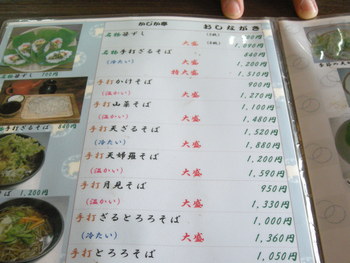 かじか亭 おしながき
名物岩ずし
1,000円
名物手打ざるそば 840円
(冷たい) 大盛 1,200円
特大盛 1,310円
手打かけそば 900円
(温かい) 大盛 1,270円
手打山菜そば 1,100円
(温かい) 大盛 1,480円
手打天ざるそば 1,520円
(冷たい) 大盛 1,880円
手打天婦羅そば 1,200円
(温かい) 大盛 1,590円
手打月見そば 950円
(温かい) 大盛 1,330円
手打ざるとろろそば 1,000円
(冷たい) 大盛 1,360円
手打とろろそば 1,050円